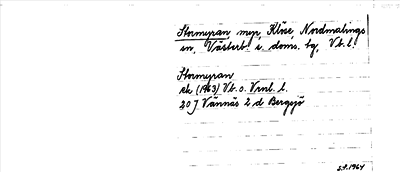 Stormyran myr, Klöse, Nordmalings
sn, Västerb. s. doms. bg, Vb. l.
Stormyran
ek (1963) Vb. o. Vrnl. l.
20 J Vännäs 2 d Bergsjö
3.9.1964